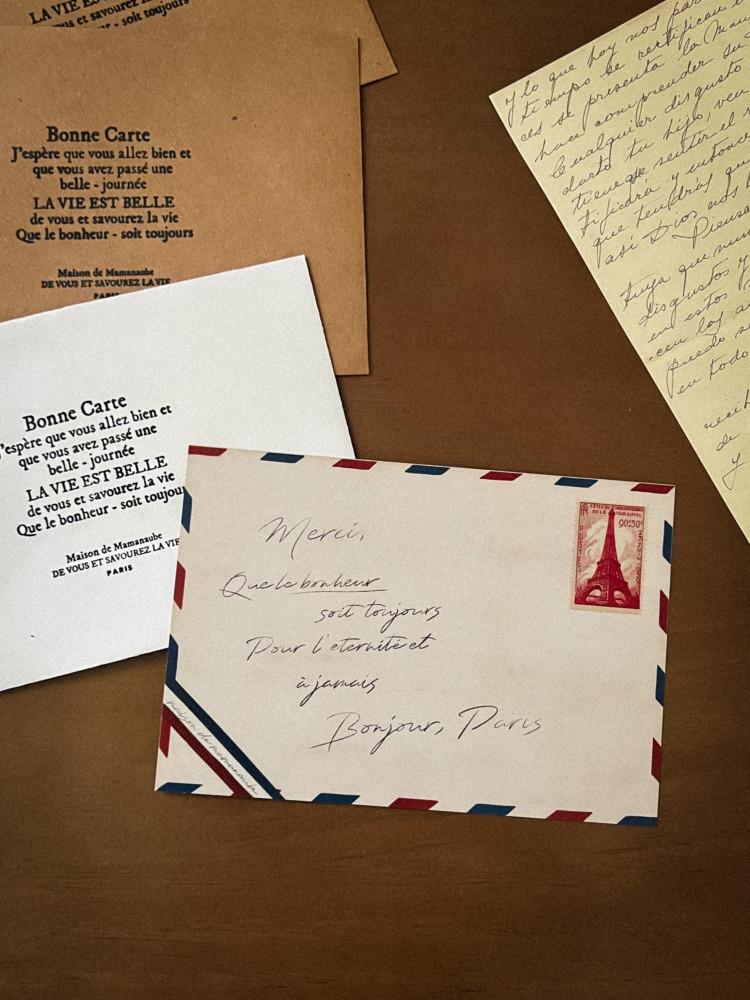 LA VIE ES
us et savourez la vie
- soit toujours
Bonne Carte
J'espère que vous allez bien et
que vous avez passé une
belle - journée
LA VIE EST BELLE
de vous et savourez la vie
Que le bonheur - soit toujours
Maison de Mamanaube
DE VOUS ET SAVOUREZ LA VIE
PARIS
Bonne Carte
J'espère que vous allez bien et
que vous avez passé une
belle - journée
LA VIE EST BELLE
de vous et savourez la vie
Que le bonheur - soit toujou
Maison de Mamanaube
DE VOUS ET SAVOUREZ LA VIE
PARIS
Merci,
Que le bonheur
soit toujours
Pour l'eternité et
à jamais
Bonjour, Paris
maison de mamanaube
DE LA TOUR EIFFEL
90c+50c
y lo que hoy nos par
tiempo se rectifican
ces se presenta la
hace comprender su
cualquier disgusto
darte tu hijo, ven
tiene que sentir el
tificará y entonce
que tendrás qu
así Dios nos
Piensa
tuya que nun
disgustos y
en estos
con los a
puede s
en todo
recib
de
y